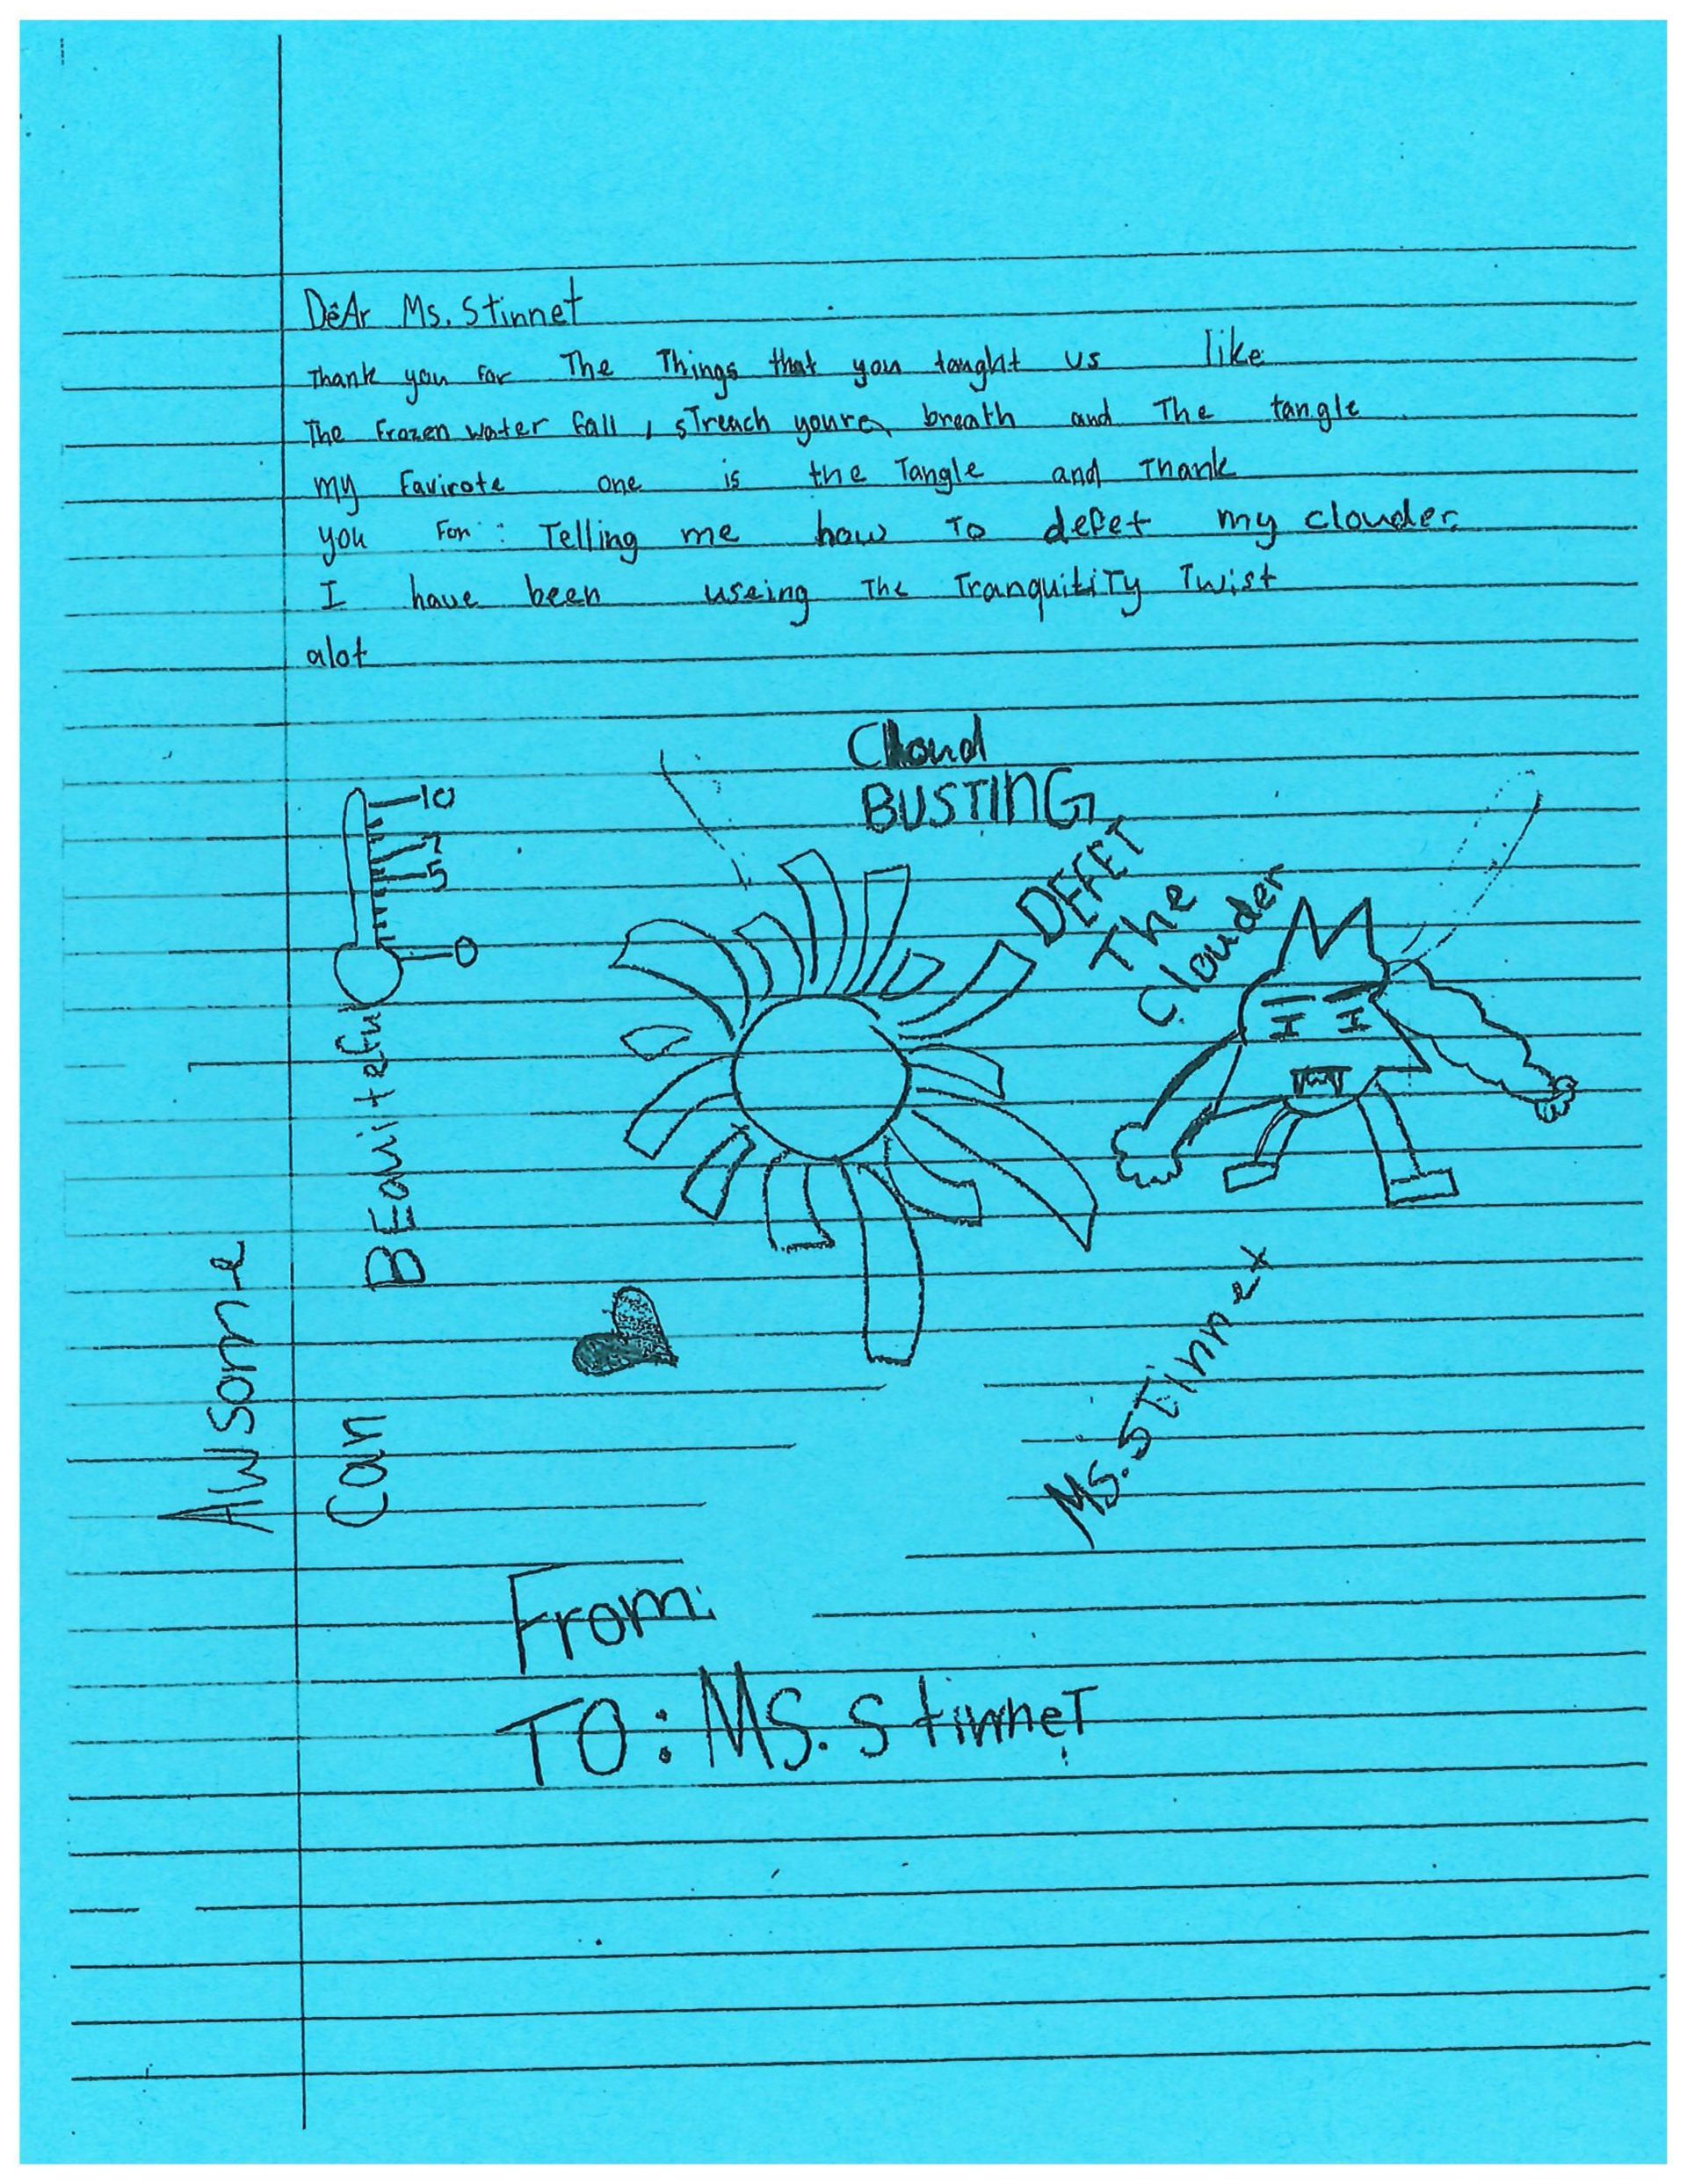 DeAr Ms. Stinnet
Thank you For The Things that you taught us like
The Frozen water fall, sTreach youre breath and The tangle
my Favirote one is the Tangle and Thank
you For: Telling me how To defet my clouder.
I have been useing The Tranquitity Twist
alot
Cloud
BUSTING
DEFET
The
Clouder
10
7
5
0
BEauiteful
Awsome
Can
Ms. STinnet
From:
TO: MS. StinneT